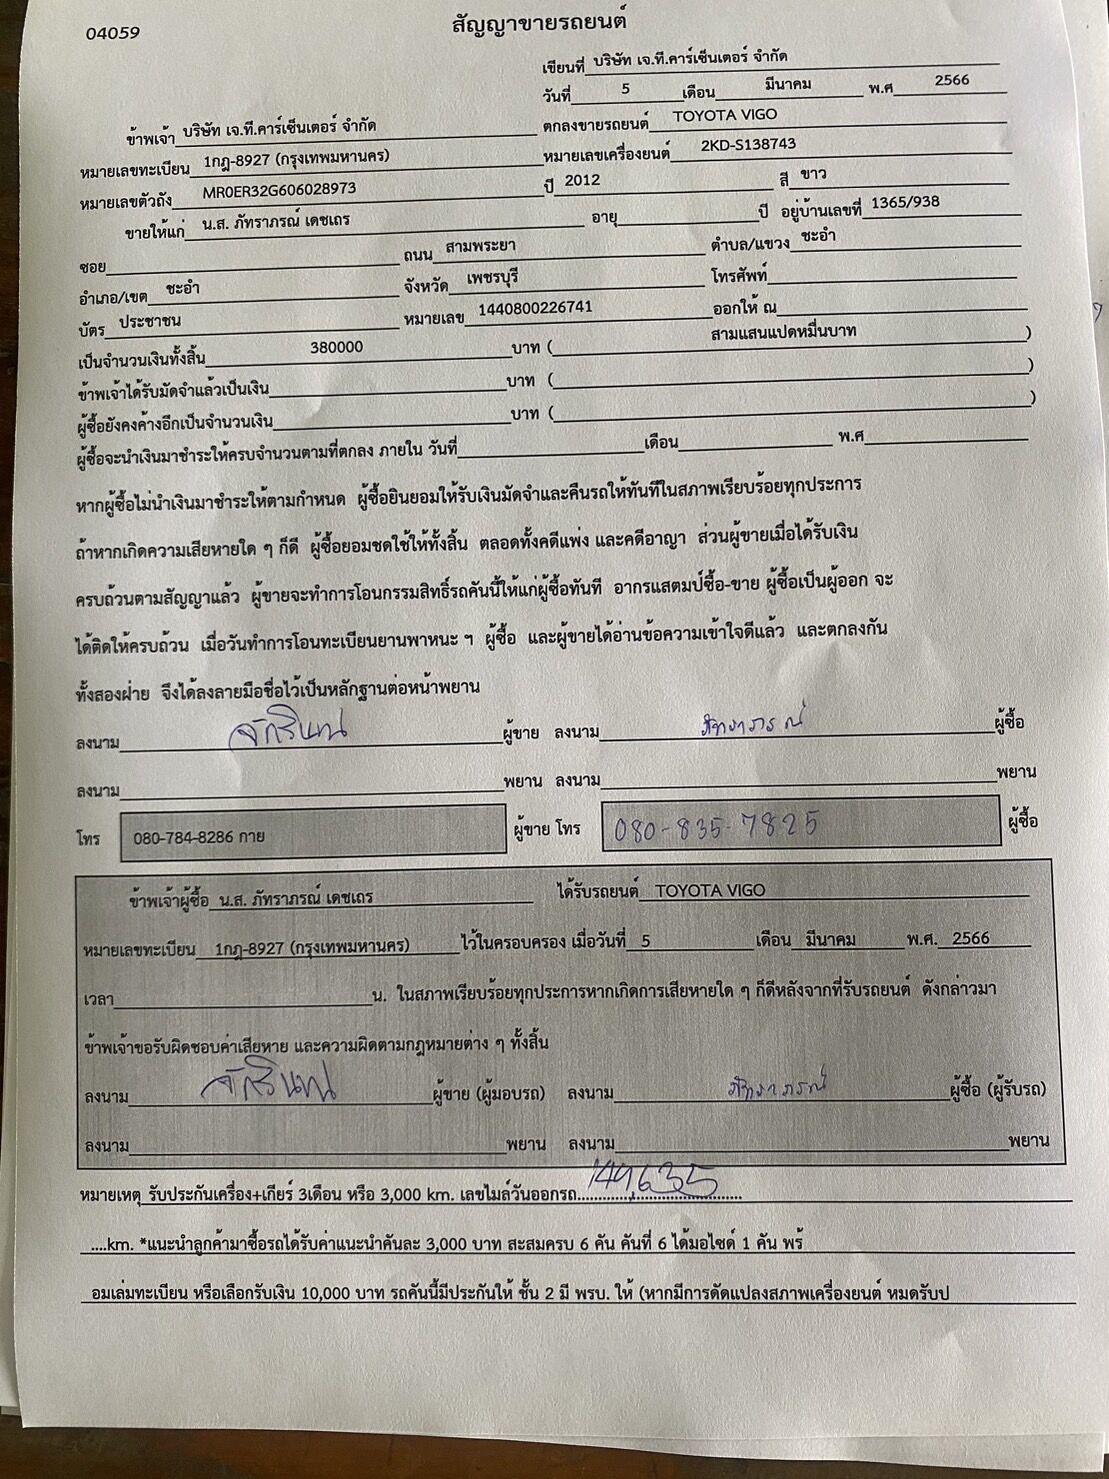 04059
สัญญาขายรถยนต์
เขียนที่ บริษัท เจ.ที.คาร์เซ็นเตอร์ จำกัด
วันที่ 5 เดือน มีนาคม พ.ศ 2566
ข้าพเจ้า บริษัท เจ.ที.คาร์เซ็นเตอร์ จำกัด ตกลงขายรถยนต์ TOYOTA VIGO
หมายเลขทะเบียน 1กฎ-8927 (กรุงเทพมหานคร) หมายเลขเครื่องยนต์ 2KD-S138743
หมายเลขตัวถัง MR0ER32G606028973 ปี 2012 สี ขาว
ขายให้แก่ น.ส. ภัทราภรณ์ เดชเถร อายุ ปี อยู่บ้านเลขที่ 1365/938
ซอย ถนน สามพระยา ตำบล/แขวง ชะอำ
อำเภอ/เขต ชะอำ จังหวัด เพชรบุรี โทรศัพท์
บัตร ประชาชน หมายเลข 1440800226741 ออกให้ ณ
เป็นจำนวนเงินทั้งสิ้น 380000 บาท ( สามแสนแปดหมื่นบาท )
ข้าพเจ้าได้รับมัดจำแล้วเป็นเงิน บาท ( )
ผู้ซื้อยังคงค้างอีกเป็นจำนวนเงิน บาท ( )
ผู้ซื้อจะนำเงินมาชำระให้ครบจำนวนตามที่ตกลง ภายใน วันที่ เดือน พ.ศ
หากผู้ซื้อไม่นำเงินมาชำระให้ตามกำหนด ผู้ซื้อยินยอมให้รับเงินมัดจำและคืนรถให้ทันทีในสภาพเรียบร้อยทุกประการ
ถ้าหากเกิดความเสียหายใด ๆ ก็ดี ผู้ซื้อยอมชดใช้ให้ทั้งสิ้น ตลอดทั้งคดีแพ่ง และคดีอาญา ส่วนผู้ขายเมื่อได้รับเงิน
ครบถ้วนตามสัญญาแล้ว ผู้ขายจะทำการโอนกรรมสิทธิ์รถคันนี้ให้แก่ผู้ซื้อทันที อากรแสตมป์ซื้อ-ขาย ผู้ซื้อเป็นผู้ออก จะ
ได้ติดให้ครบถ้วน เมื่อวันทำการโอนทะเบียนยานพาหนะ ฯ ผู้ซื้อ และผู้ขายได้อ่านข้อความเข้าใจดีแล้ว และตกลงกัน
ทั้งสองฝ่าย จึงได้ลงลายมือชื่อไว้เป็นหลักฐานต่อหน้าพยาน
ลงนาม จักรินทน์ ผู้ขาย ลงนาม ภัทราภรณ์ ผู้ซื้อ
ลงนาม พยาน ลงนาม พยาน
โทร 080-784-8286 กาย ผู้ขาย โทร 080-835-7825 ผู้ซื้อ
ข้าพเจ้าผู้ซื้อ น.ส. ภัทราภรณ์ เดชเถร ได้รับรถยนต์ TOYOTA VIGO
หมายเลขทะเบียน 1กฎ-8927 (กรุงเทพมหานคร) ไว้ในครอบครอง เมื่อวันที่ 5 เดือน มีนาคม พ.ศ. 2566
เวลา น. ในสภาพเรียบร้อยทุกประการหากเกิดการเสียหายใด ๆ ก็ดีหลังจากที่รับรถยนต์ ดังกล่าวมา
ข้าพเจ้าขอรับผิดชอบค่าเสียหาย และความผิดตามกฎหมายต่าง ๆ ทั้งสิ้น
ลงนาม จักรินทน์ ผู้ขาย (ผู้มอบรถ) ลงนาม ภัทราภรณ์ ผู้ซื้อ (ผู้รับรถ)
ลงนาม พยาน ลงนาม พยาน
หมายเหตุ รับประกันเครื่อง+เกียร์ 3เดือน หรือ 3,000 km. เลขไมล์วันออกรถ 149,635
....km. *แนะนำลูกค้ามาซื้อรถได้รับค่าแนะนำคันละ 3,000 บาท สะสมครบ 6 คัน คันที่ 6 ได้มอไซด์ 1 คัน พร้
อมเล่มทะเบียน หรือเลือกรับเงิน 10,000 บาท รถคันนี้มีประกันให้ ชั้น 2 มี พรบ. ให้ (หากมีการดัดแปลงสภาพเครื่องยนต์ หมดรับป